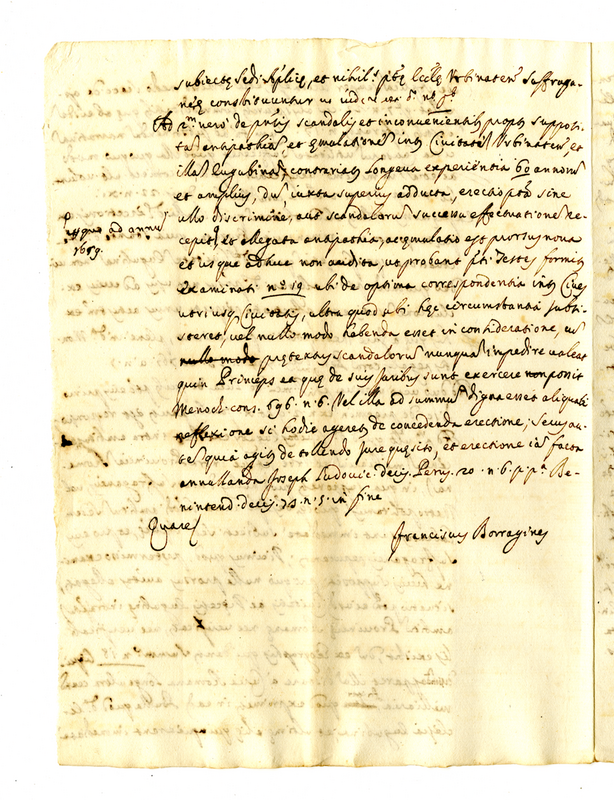 subiectę Sedi Aplicę, et nihil ptę Ecclię Urbinaten Suffraga-
neę constituuntur ut
Ad 2m vero de prtis scandalis, et inconvenientijs propr supposi-
tas antipathias, et emulationes inter Civitates Urbinaten, et
illas Eugubinas, contrariam longeva experientia 60 annorum
et amplius, dum iuxta superius adducta, erectio pta sine
ullo discrimine, aut scandalorum successu effectuationem re-
cepit, et allegata antipathia, ac emulatio est prorsus nova
et usque adhuc non audita, ut probant pti Testes formiter
examinati n.º 19 ubi de optima correspondentia inter Cives
utriusque Civitatis, ultra quod ubi hęc circumstantia subsi-
steret, vel nullo modo habenda esset in consideratione, ut
nullo modo prętextus scandalorum nunquam impedire valeat
quin Princeps ea quę de suis Juribus sunt exercere non possit
Menoch. cons. 696. n. 6. Vel illa ad summum digna esset aliquali
reflexione si hodie ageretur de concedenda erectione; secus au-
tem quia agitur de tollendo Jure quęsito, et erectione iam facta
annullanda Joseph Ludovic. decis. Perus. 20. n. 6. p. pa. Be-
nintend. decis. 73. n. 5. in fine
Quare
Franciscus Borragines
usque ad annum
1659.